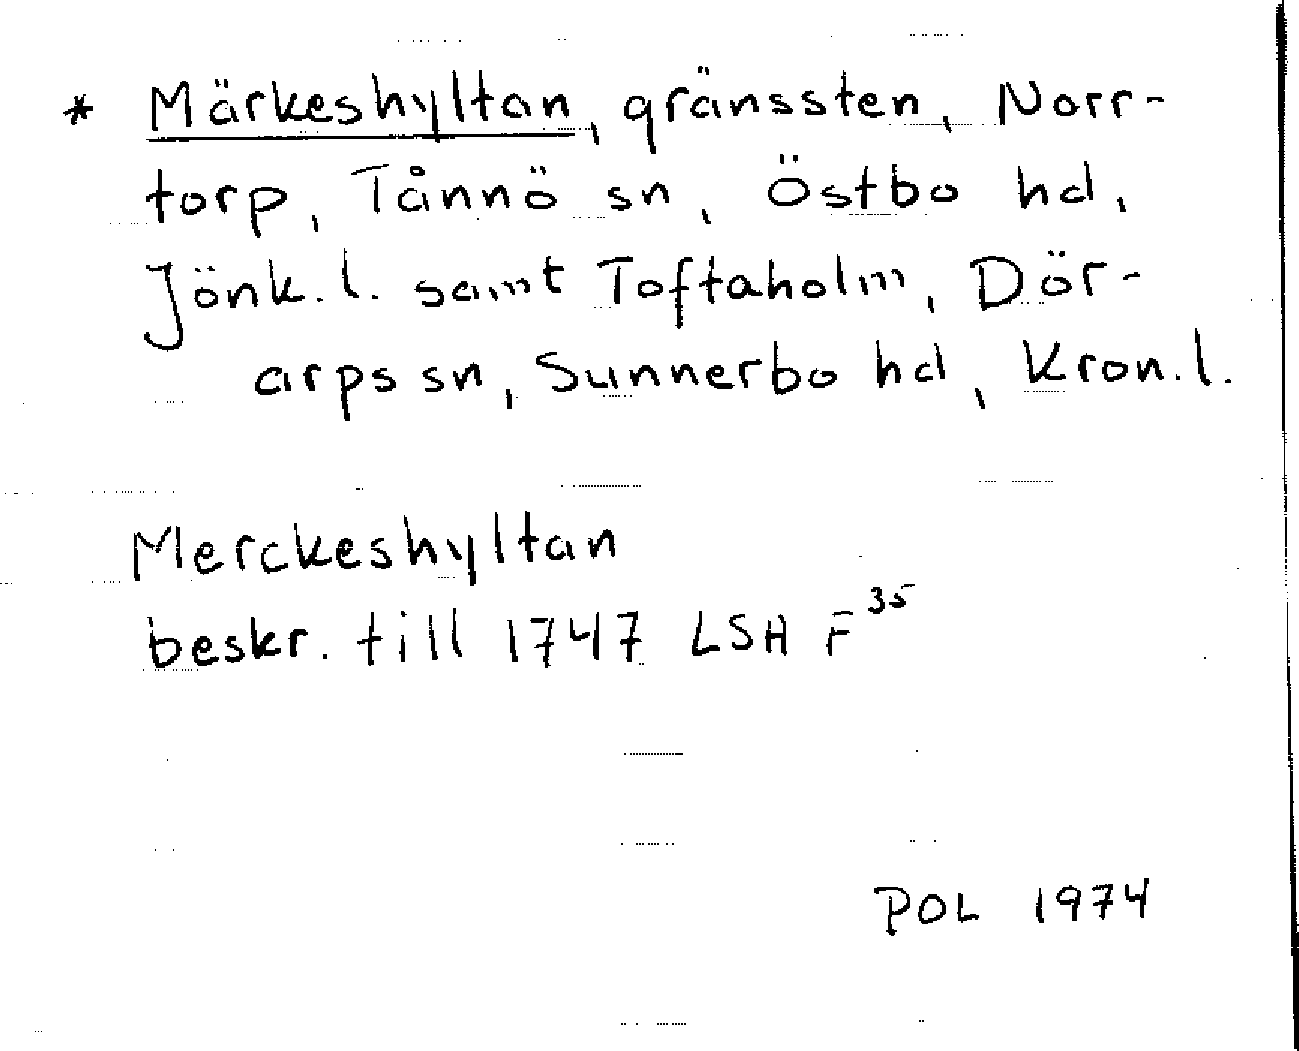 * Märkeshyltan, gränssten, Norr-
torp, Tånnö sn, Östbo hd,
Jönk.l. samt Toftaholm, Dör-
arps sn, Sunnerbo hd, Kron.l.
Merckeshyltan
beskr. till 1747 LSH F 35
POL 1974